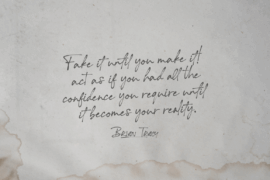 Fake it until you make it!
act as if you had all the
confidence you require until
it becomes your reality.
Brian Tracy